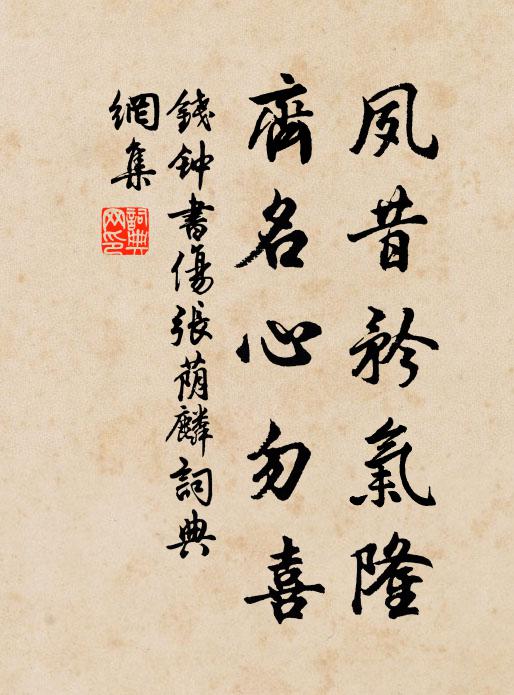 夙昔矜氣隆
齊名心勿喜
錢钟書傷張荫麟詞典
網集
詞典網印